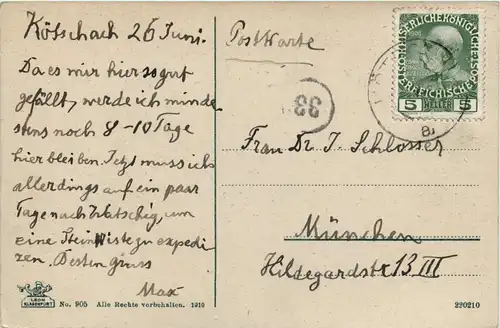 Kötschach 26 Juni.
Da es mir hier so gut
gefällt, werde ich minde
stens noch 8-10 Tage
hier bleiben. Jetzt muss ich
allerdings auf ein paar
Tage nach Watschig, um
eine Steinkiste zu expedi
zen. Besten gruss
Max
Postkarte
88
KAISERLICHE KÖNIGLICHE
ÖSTERREICHISCHE
5 HELLER 5
Frau Dr J. Schlosser
München
Hildegardstr 13 III
LEON
KLAGENFURT
No. 905 Alle Rechte vorbehalten. 1910
220210